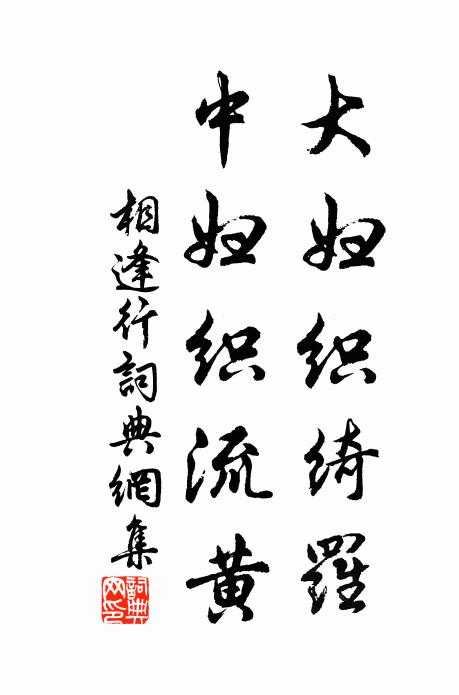 大妇织绮罗
中妇织流黄
相逢行詞典網集
詞典
网印